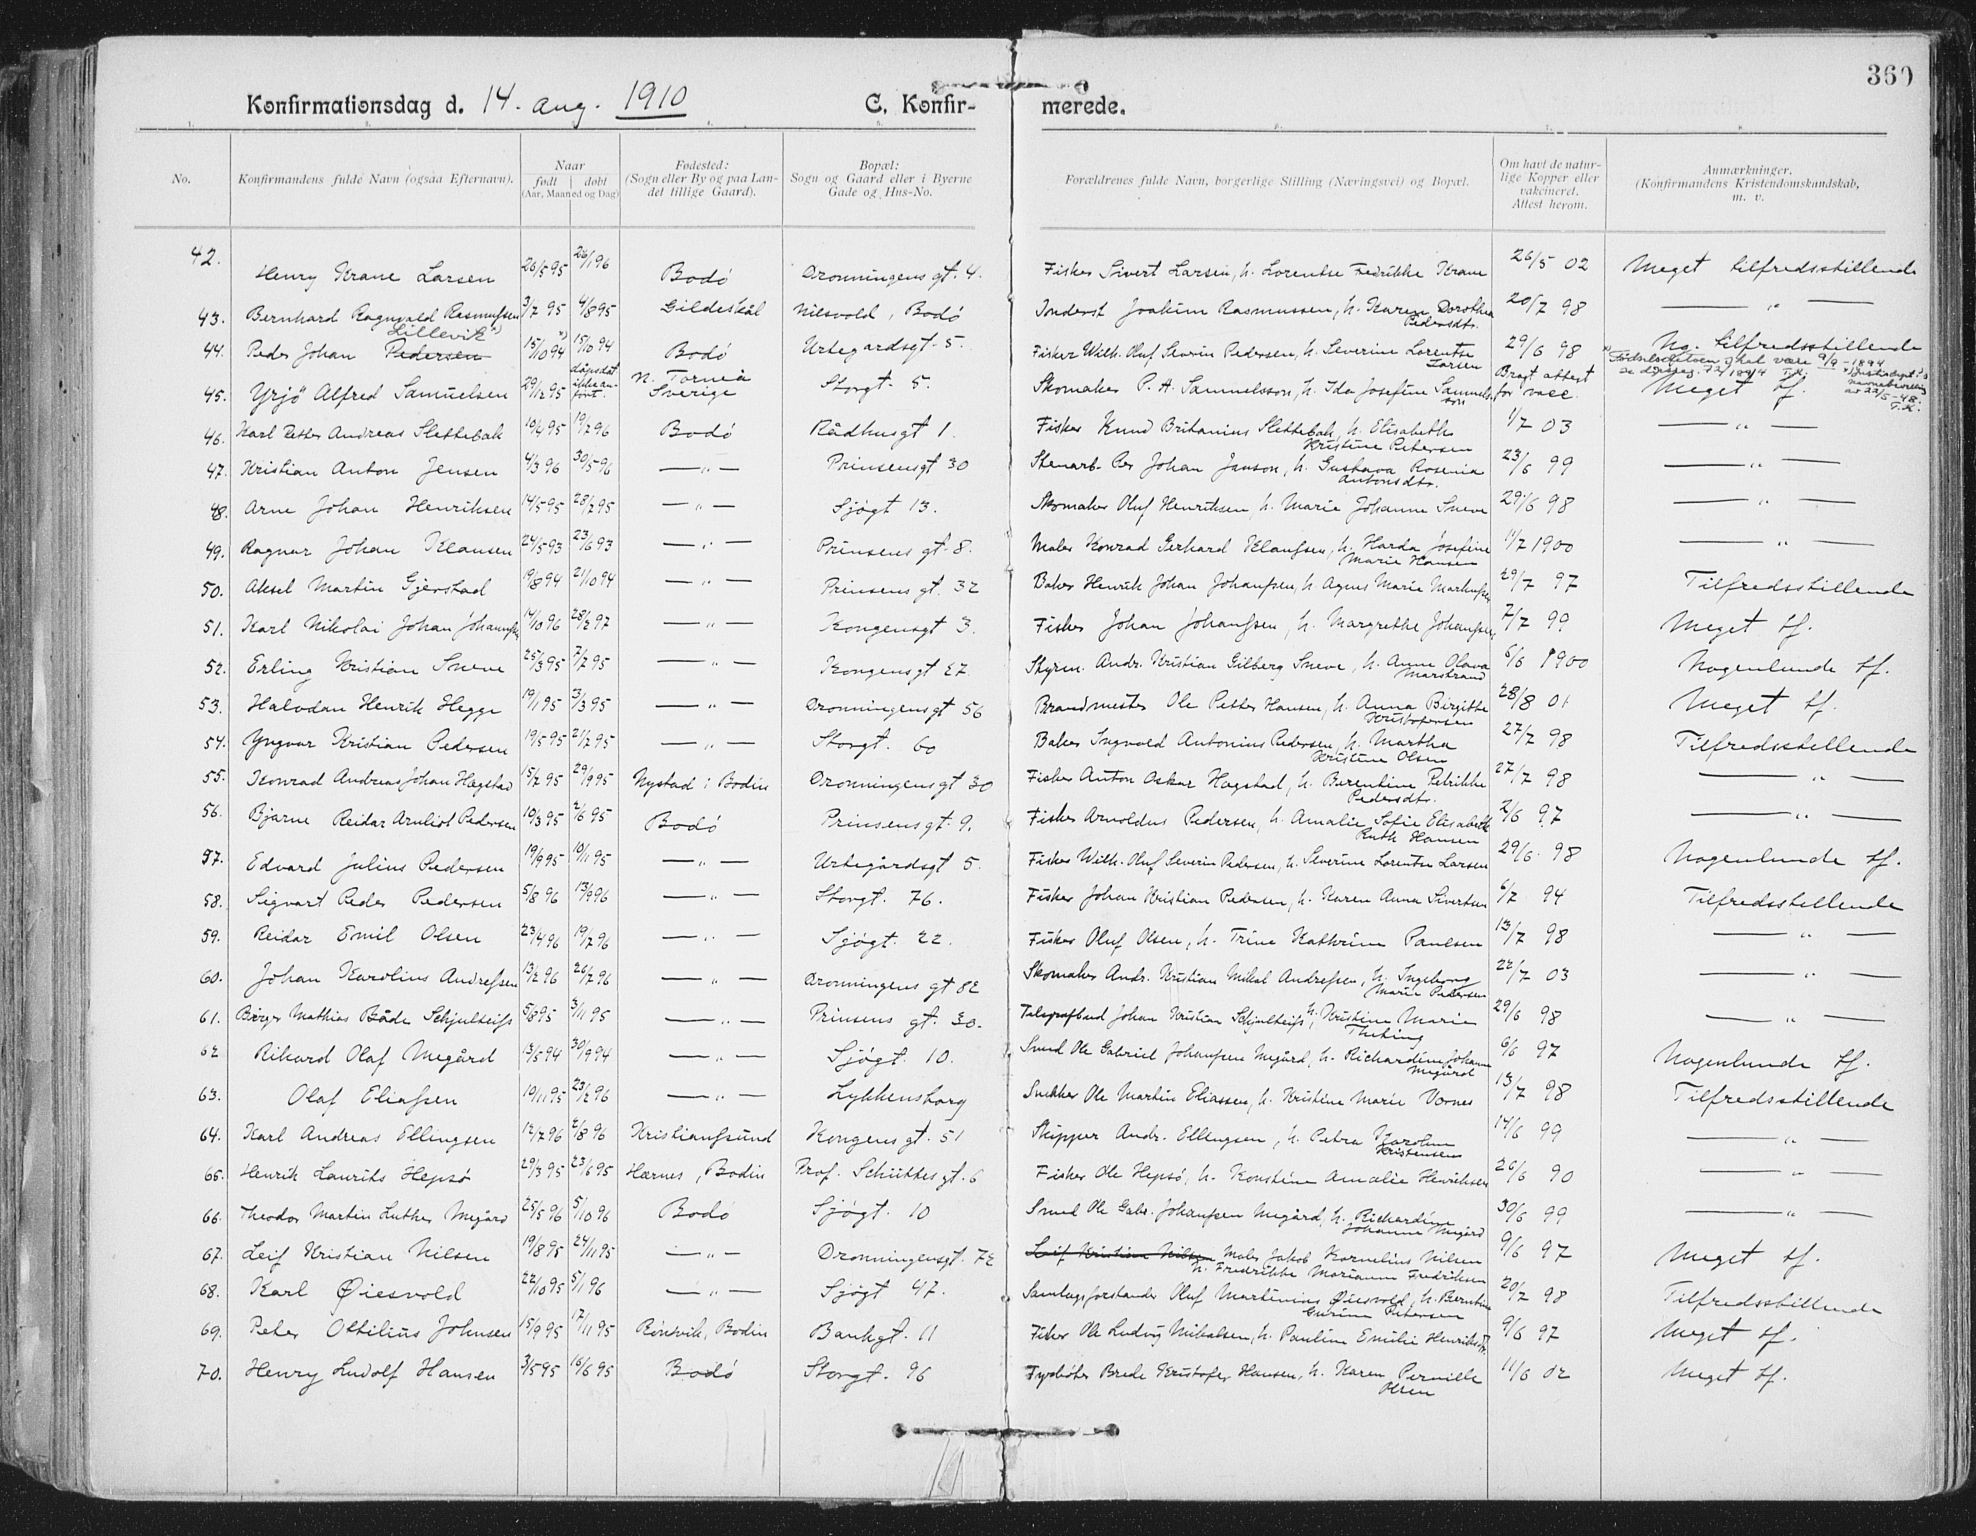 360
Konfirmationsdag d. 14. aug. 1910 C. Konfir- merede.
1. 2. 3. 4. 5. 6. 7. 8.
No. Konfirmandens fulde Navn (ogsaa Efternavn). Naar født døbt (Aar, Maaned og Dag) Fødested: (Sogn eller By og paa Lan- det tillige Gaard). Bopæl: Sogn og Gaard eller i Byerne Gade og Hus-No. Forældrenes fulde Navn, borgerlige Stilling (Næringsvei) og Bopæl. Om havt de natur- lige Kopper eller vakcineret. Attest herom. Anmærkninger. (Konfirmandens Kristendomskundskab, m. v.
42. Henry Krane Larsen 26/5 95 26/1 96 Bodó Dronningens gt. 4. Fisker Sivert Larsen, h. Lorentse Fredrikke Krane 26/5 02 Meget tilfredsstillende
43. Bernhard Ragnvald Rasmussen 3/7 95 4/8 95 Gildeskål Nilsvold, Bodó Inderst Joakim Rasmussen, h. Karen Dorothea Pedersdtr. 20/7 98 — „ —
Lillevik x)
44. Peder Johan Pedersen 15/10 94 x) 15/10 94 Bodó Urtegardsgt. 5. Fisker Wilh. Oluf Severin Pedersen, h. Severine Lorentse Larsen 29/6 98 Ng. tilfredsstillende
Fødselsdatoen skal være 9/9-1894
av 22/5-48. T.K.
45. Yrjö Alfred Samuelsen 29/12 95 dåpsdat. ikke an- ført. N. Torneå Sverige Storgt. 5. Skomaker P. A. Samuelsson, h. Ida Josefine Samuels- son Bragt attest for vacc. Meget tf.
46. Karl Peter Andreas Slettebak 19/4 95 19/2 96 Bodó Rådhusgt 1. Fisker Knud Britanius Slettebak, h. Elisabeth Kristine Petersen 1/7 03 — „ —
47. Kristian Anton Jensen 4/3 96 30/5 96 — „ — Prinsensgt 30 Stenarb. Per Johan Janson, h. Gustava Rosenia Antonsdtr. 23/6 99 — „ —
48. Arne Johan Henriksen 14/5 95 28/7 95 — „ — Sjögt 13. Skomaker Oluf Henriksen, h. Marie Johanne Sneve 29/6 98 — „ —
49. Ragnar Johan Klausen 24/5 93 23/6 93 — „ — Prinsens gt. 8. Maler Konrad Gerhard Klaussen, h. Harda Josefine Marie Hansen 11/7 1900 — „ —
50. Aksel Martin Gjerstad 19/8 94 21/10 94 — „ — Prinsens gt. 32 Baker Henrik Johan Johanssen, h. Agnes Marie Markussen 29/7 97 Tilfredsstillende
51. Karl Nikolai Johan Johanssen 14/10 96 28/2 97 — „ — Kongensgt 3. Fisker Johan Johanssen, h. Margrethe Johanssen 7/7 99 Meget tf.
52. Erling Kristian Sneve 25/3 95 7/7 95 — „ — Kongensgt 27 Styrm. Andr. Kristian Gilberg Sneve, h. Anne Olava Marstrand 6/6 1900 Nogenlunde tf.
53. Halvdan Henrik Hegge 19/1 95 3/3 95 — „ — Dronningensgt 56 Brandmester Ole Petter Hansen, h. Anna Birgitte Kristofersen 28/8 01 Meget tf.
54. Yngvar Kristian Pedersen 19/5 95 21/7 95 — „ — Storgt. 60 Baker Ingvald Antonius Pedersen, h. Martha Kristine Olsen 27/7 98 Tilfredsstillende
55. Konrad Andreas Johan Hegstad 15/7 95 29/9 95 Nystad i Bodin Dronningensgt 30 Fisker Anton Oskar Hegstad, h. Berentine Petrikke Pedersdtr. 27/7 98 — „ —
56. Bjarne Reidar Arnliot Pedersen 10/3 95 2/6 95 Bodó Prinsensgt. 9. Fisker Arnoldus Pedersen, h. Amalie Sofie Elisabeth Ruth Hansen 2/6 97 — „ —
57. Edvard Julius Pedersen 19/9 95 10/11 95 — „ — Urtegårdsgt 5. Fisker Wilh. Oluf Severin Pedersen, h. Severine Lorentse Larsen 29/6 98 Nogenlunde tf.
58. Sigvart Peder Pedersen 5/8 96 13/9 96 — „ — Storgt. 76. Fisker Johan Kristian Pedersen, h. Karen Anna Sivertsen 6/7 94 Tilfredsstillende
59. Reidar Emil Olsen 23/4 96 19/7 96 — „ — Sjögt. 22. Fisker Oluf Olsen, h. Trine Kathrine Paulsen 13/7 98 — „ —
60. Johan Karolius Andressen 13/2 96 26/7 96 — „ — Dronningens gt 82 Skomaker Andr. Kristian Mikal Andressen, h. Ingeborg Marie Pedersen 22/7 03 — „ —
61. Birger Mathias Både Schjulteiss 5/8 95 3/11 95 — „ — Prinsens gt. 30. Telegrafbud Johan Kristian Schjulteiss, h. Kristine Marie Theting 29/6 98 — „ —
62 Rikard Olaf Megård 13/5 94 30/9 94 — „ — Sjögt. 10. Smed Ole Gabriel Johanssen Megård, h. Richardine Johanne Megård 6/6 97 Nogenlunde tf.
63. Olaf Eliassen 19/11 95 23/2 96 — „ — Lykkensborg Snekker Ole Martin Eliassen, h. Kristine Marie Vornes 13/7 98 Tilfredsstillende
64. Karl Andreas Ellingsen 12/7 96 2/8 96 Kristianssund Kongens gt. 51 Skipper Andr. Ellingsen, h. Petra Karoline Kristensen 14/6 99 — „ —
65. Henrik Laurits Hepsø 29/3 95 23/6 95 Hernes, Bodin Prof. Schüttes gt. 6 Fisker Ole Hepsø, h. Konstine Amalie Henriksen 26/6 90 — „ —
66. Theodor Martin Luther Megård 25/5 96 5/10 96 Bodó Sjögt. 10 Smed Ole Gabr. Johanssen Megård, h. Richardine Johanne Megård 30/6 99 — „ —
67. Leif Kristian Nilsen 19/8 95 24/11 95 — „ — Dronningensgt. 72 Leif Kristian Nilsen Maler Jakob Kornelius Nilsen h. Fredrikke Marianne Fredriksen 9/6 97 Meget tf.
68. Karl Øiesvold 22/10 95 5/1 96 — „ — Sjögt 47. Samlagsforstander Oluf Martinius Øiesvold, h. Berntine Gurine Petersen 20/7 98 Tilfredsstillende
69. Peter Ottilius Johnsen 15/9 95 17/11 95 Rönvik, Bodin Bankgt. 11 Fisker Ole Ludvig Mikalsen, h. Pauline Emilie Henriksdtr. 9/6 97 Meget tf.
70. Henry Ludolf Hansen 3/5 95 16/6 95 Bodó Storgt. 96 Fyrbøter Brede Kristofer Hansen, h. Karen Pernille Olsen 11/6 02 Meget tf.